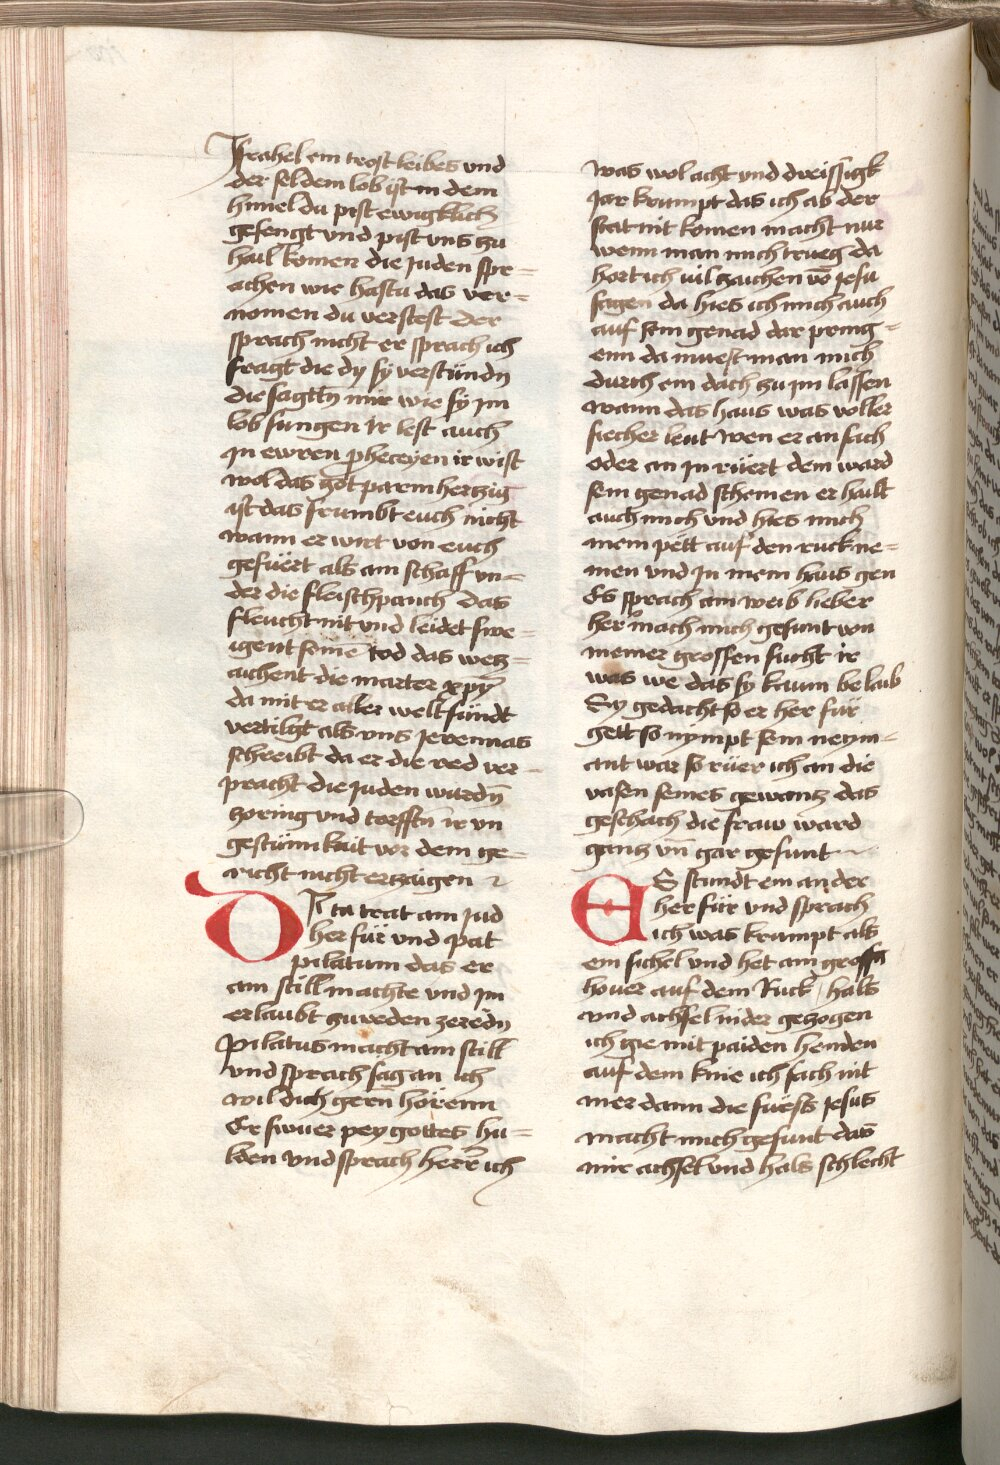 Israhel ein trost leibes und
der sel dem lob ist in dem
himel du pist ewigklich
gesengt und pist uns zu
hail komen die juden spre=
achen wie hastu das ver=
nomen du verstest der
sprach nicht er sprach ich
fragt die dy sy verstündn
die sagttn mir wie sy im
lob sungen ir lest auch
in ewren pheceyen ir wist
wol das got parmhertzig
ist das frumbt euch nicht
wann er wirt von euch
gefüert als ain schaff un=
der die fleischpanch das
fleucht nit und leidet swe=
igent seine tod das wetz=
aichent die marter xpy
da mit er aller welt sündt
vertilgt als uns jeremias
schreibt da er die red ver=
pracht die juden wurdn
zornig und torfftn ir un
gestümkait vor dem ge=
richt nicht ertzaigen
Da trat ain jud
her für und pat
pilatum das er
ain still machte und im
erlaubt zuweden zeredn
Pilatus macht ain still
und sprach sag an ich
wil dich gern hörenn
Er swuer pey gottes hu=
lden und sprach herr ich
was wol acht und dreissigk
jar krumpt das ich ab der
stat nit komen macht nur
wenn man mich trueg da
hort ich vil zaichen vo jesu
sagen da hies ich mich auch
auf sein genad dar pring=
enn da muest man mich
durch ein dach zu im lassen
wann das haus was voller
siecher leut wen er an sach
oder an in rüert dem ward
sein genad schemen er hailt
auch mich und hies mich
mein pett auf den ruck ne=
men und in mein haus gen
Es sprach ain weib lieber
her mach mich gesunt von
meiner grossen sucht ir
was we das sy kaum belaib
Sy gedacht so er her für
gett so nympt sein neym=
ant war so rüer ich an die
vasen seines gewantz das
geschach die fraw ward
gantz un gar gesunt
ES stundt ein ander
her für und sprach
ich was krumpt als
ein sichel und het ain grossn
hover auf dem Ruck hals
und achsel nider gezogen
ich gie mit paiden henden
auf dem knie ich sach nit
mer dann die fuess jesus
macht mich gesunt das
mir achsel und hals schlecht